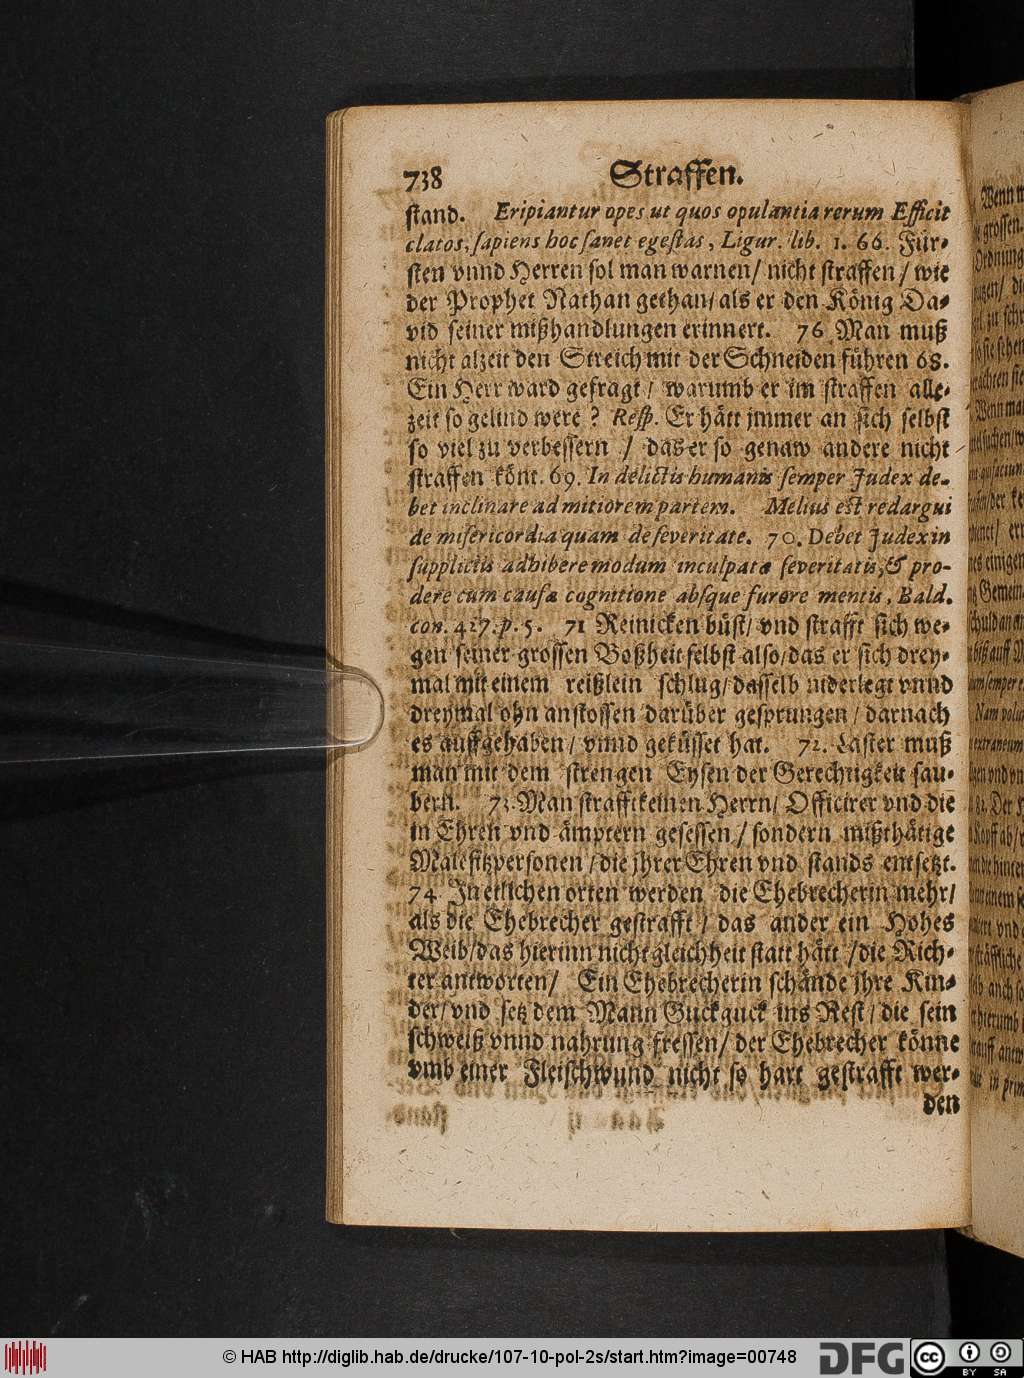 738 Straffen.
stand. Eripiantur opes ut quos opulantia rerum Efficit
elatos, sapiens hoc sanet egestas, Ligur. lib. 1. 66. Für-
sten vnnd Herren sol man warnen/ nicht straffen/ wie
der Prophet Nathan gethan/ als er den König Da-
vid seiner mißhandlungen erinnert. 76 Man muß
nicht alzeit den Streich mit der Schneiden führen 68.
Ein Herr ward gefragt/ warumb er im straffen alle-
zeit so gelind were? Resp. Er hätt jmmer an sich selbst
so viel zu verbessern / das er so genaw andere nicht
straffen könt. 69. In delictis humanis semper Judex de-
bet inclinare ad mitiorem partem. Melius est redargui
de misericordia quam de severitate. 70. Debet Judex in
suppliciis adhibere modum inculpatæ severitatis, & pro-
dere cum causæ cognitione absque furore mentis, Bald.
con. 427. p. 5. 71 Reinicken büst/ vnd strafft sich we-
gen seiner grossen Boßheit selbst also/ das er sich drey-
mal mit einem reißlein schlug/ dasselb niderlegt vnnd
dreymal ohn anstossen darüber gesprungen/ darnach
es auffgehaben/ vnnd geküsset hat. 72. Laster muß
man mit dem strengen Eysen der Gerechtigkeit sau-
bern. 73. Man strafft keinen Herrn/ Officirer vnd die
in Ehren vnd ämptern gesessen/ sondern mißthätige
Malefitzpersonen/ die jhrer Ehren vnd stands entsetzt.
74 In etlichen orten werden die Ehebrecherin mehr/
als die Ehebrecher gestrafft/ das ander ein Hohes
Weib/ das hierinn nicht gleichheit statt hätt/ die Rich-
ter antworten/ Ein Ehebrecherin schände jhre Kin-
der/ vnd setz dem Mann Guckguck ins Nest/ die sein
schweiß vnnd nahrung fressen/ der Ehebrecher könne
vmb einer Fleischwund nicht so hart gestrafft wer-
den
© HAB http://diglib.hab.de/drucke/107-10-pol-2s/start.htm?image=00748 DFG CC BY SA